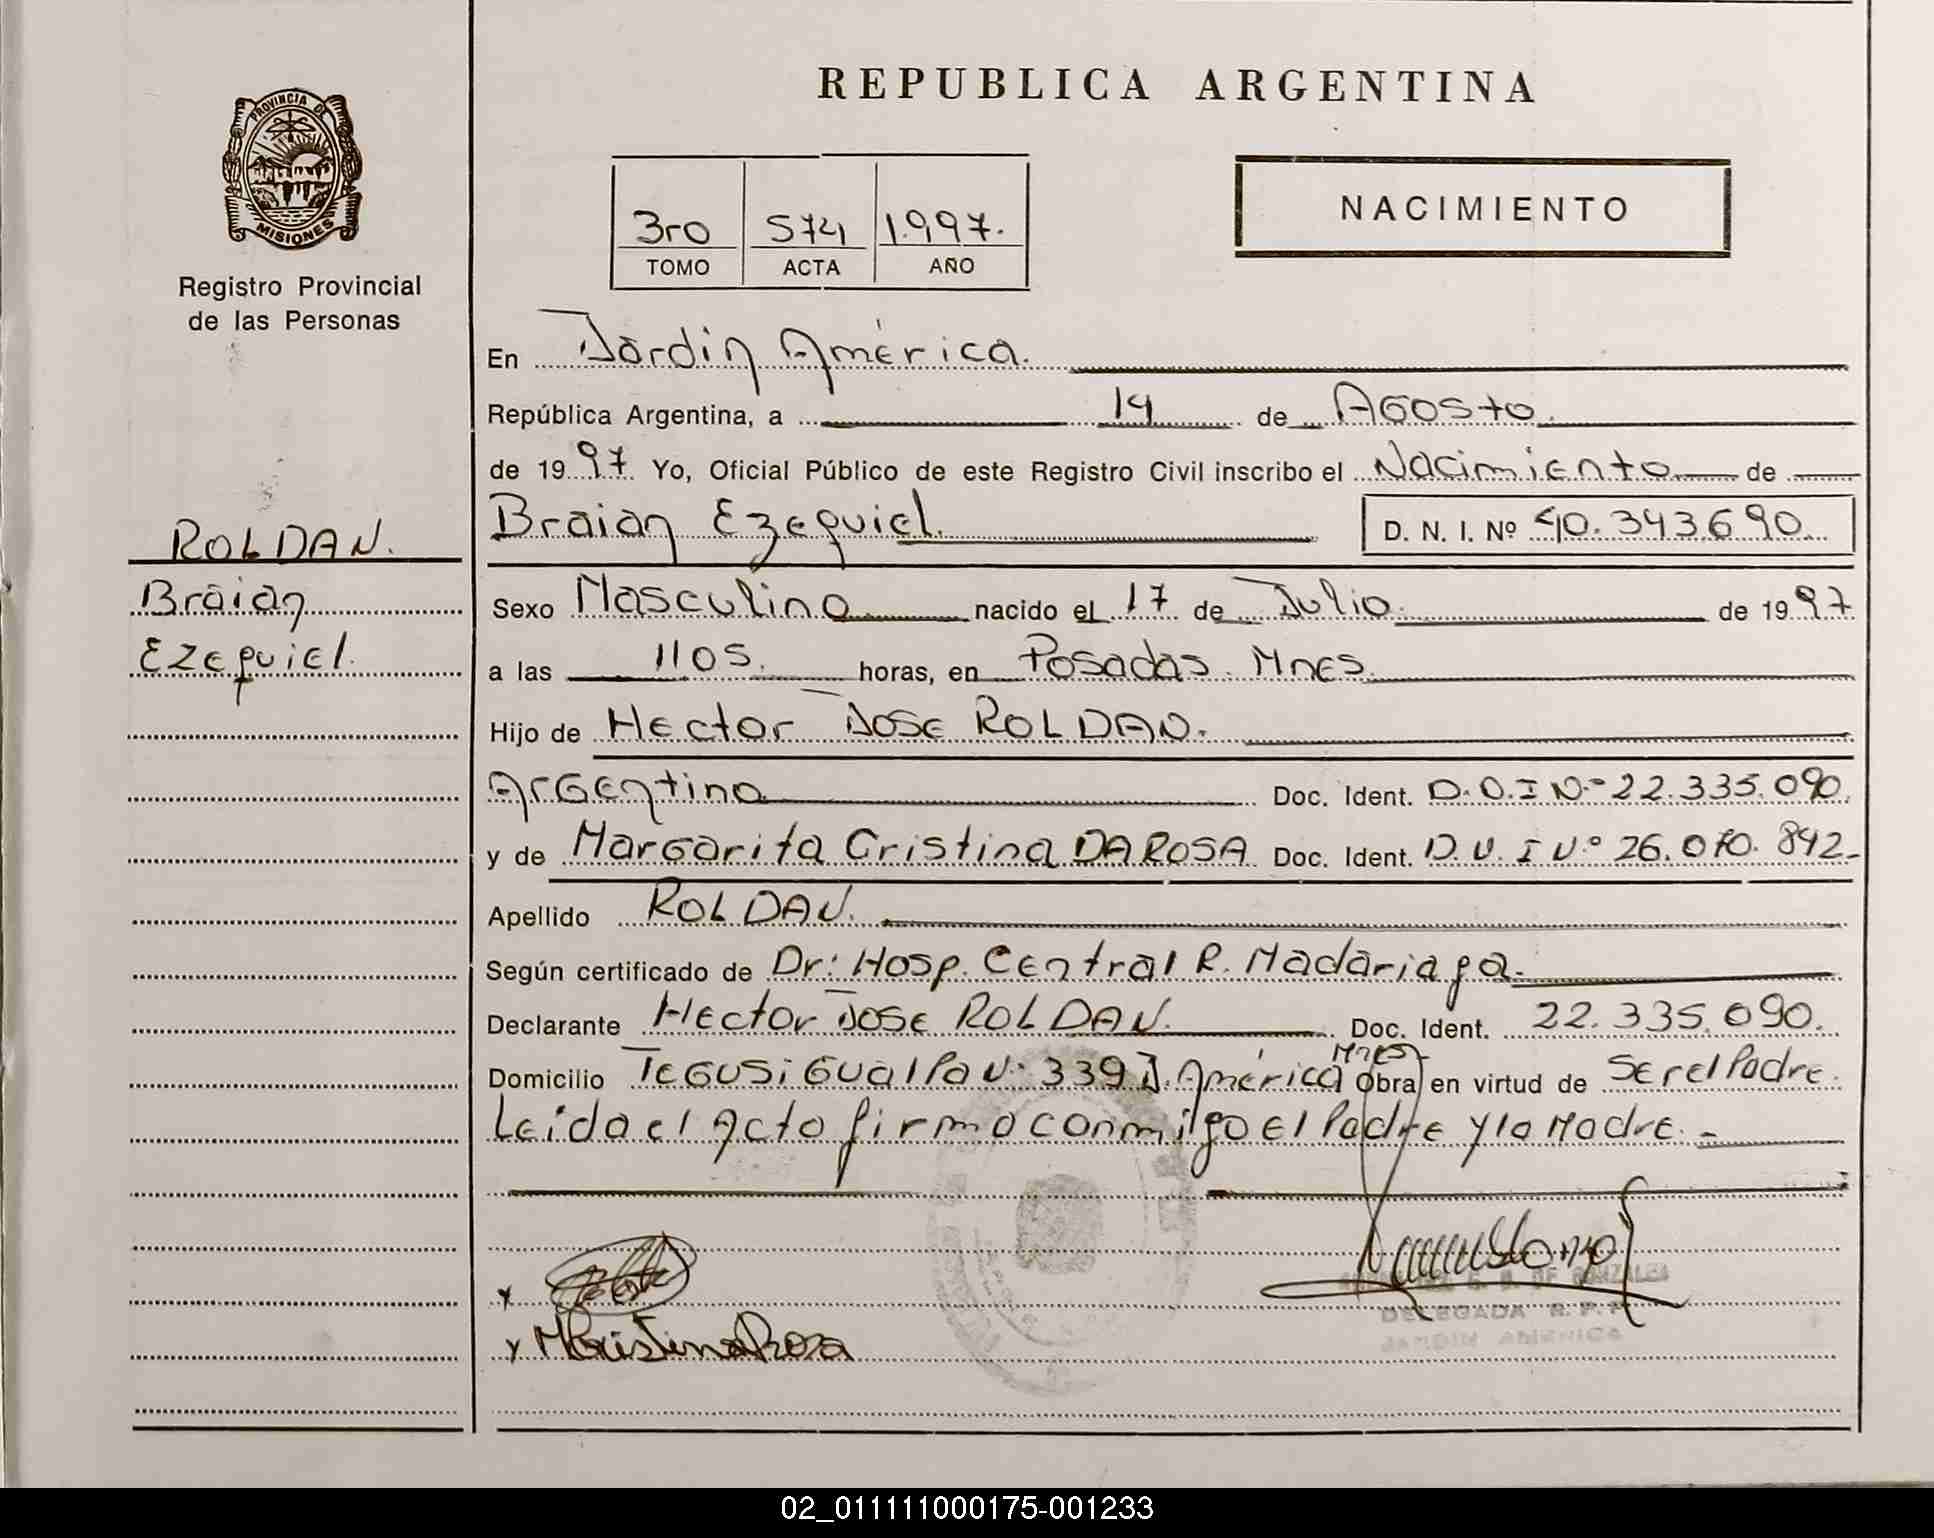 REPUBLICA ARGENTINA
PROVINCIA DE
MISIONES
Registro Provincial
de las Personas
3ro 574 1.997.
TOMO ACTA AÑO
NACIMIENTO
En Jardin América.
República Argentina, a 14 de Agosto.
de 1997. Yo, Oficial Público de este Registro Civil inscribo el Nacimiento de
Braian Ezequiel. D. N. I. Nº 40.343.690.
ROLDAN.
Braian
Ezequiel.
Sexo Masculino nacido el 17 de Julio. de 1997
a las 1105. horas, en Posadas. Mnes.
Hijo de Hector Jose ROLDAN.
Argentino Doc. Ident. D.N.I Nº 22.335.090.
y de Margarita Cristina DA ROSA Doc. Ident. D.N.I Nº 26.070.842
Apellido ROLDAN.
Según certificado de Dr: Hosp. Central R. Madariaga.
Declarante Hector Jose ROLDAN. Doc. Ident. 22.335.090.
Domicilio Tegusigualpa Nº 339 J. América Mnes Obra en virtud de ser el Padre.
Leida el Acto firma conmigo el Padre y la Madre. -
DE GONZALEZ
DELEGADA R.P.P
JARDIN AMERICA
MCristina Rosa
02_011111000175-001233